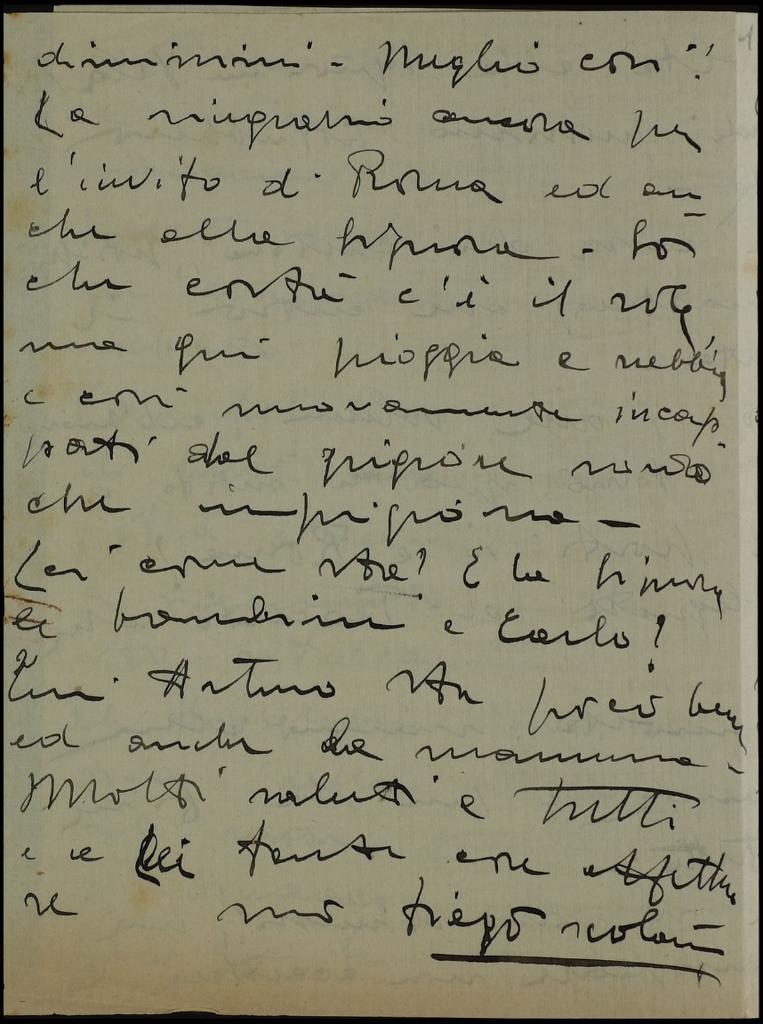 dinimini - Meglio così!
La ringrazio ancora per
l'invito di Roma ed an
che alla Signora - So
che costà c'è il sole
ma qui pioggia e nebbia
e così nuovamente incap
pati dal grigiore
che imprigiona -
Lei come sta? E la Signora
le bambine e Carlo?
Qui Arturo sta poco bene
ed anche la mamma -
Molti saluti a tutti
e a Lei tante cose affettuo
se suo